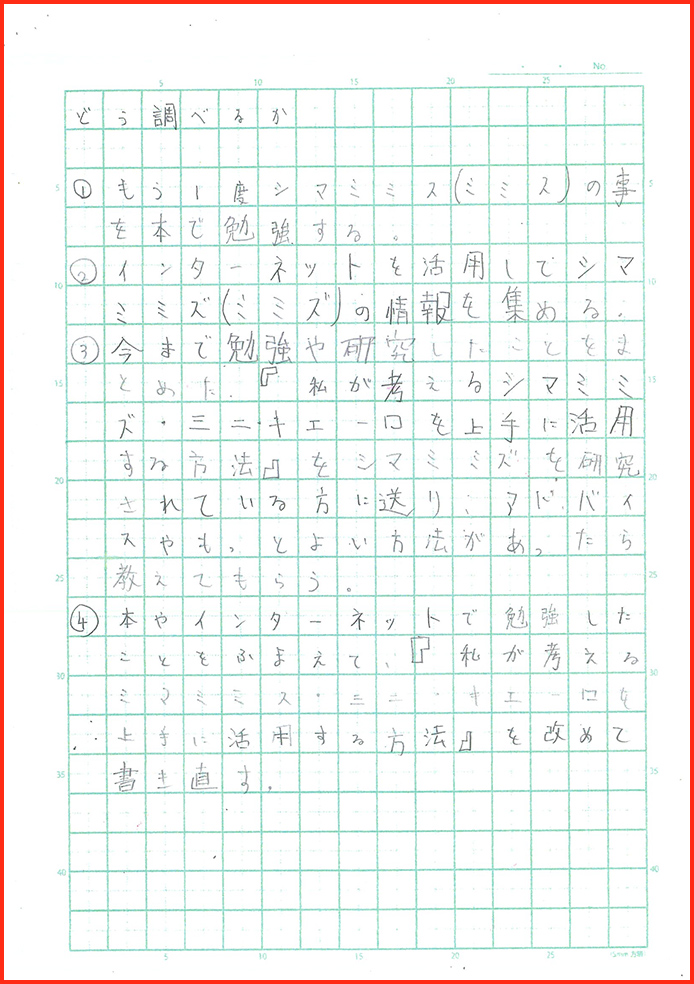 No
5 10 15 20 25
どう調べるか
①もう1度シマミミス(ミミス)の事
を本で勉強する。
②インターネットを活用してシマ
ミミズ(ミミズ)の情報を集める。
③今まで勉強や研究したことをま
とめた.『私が考えるシマミミ
ズ・ミニ・キエーロを上手に活用
する方法』をシマミミズを研究
されている方に送り、アドバイ
スやもっとよい方法があったら
教えてもらう。
④本やインターネットで勉強した
ことをふまえて、『私が考える
ミマミミス・ミニ・キエーロを
上手に活用する方法』を改めて
書き直す。
5 10 15 20 25